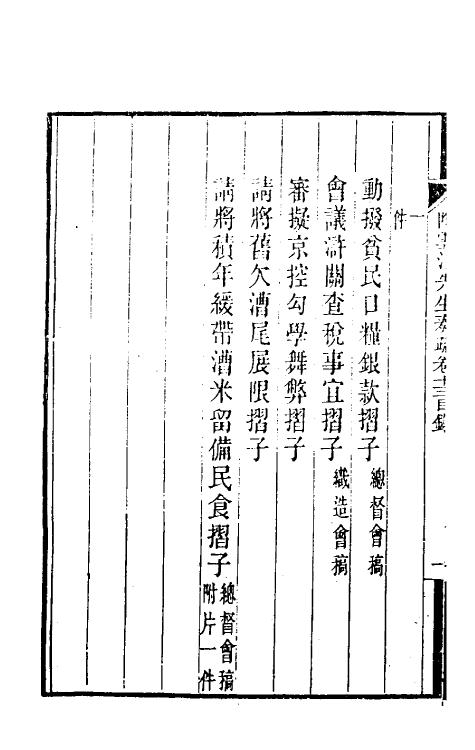 一件
動撥貧民口糧銀款摺子 總督會稿
會議滸關查稅事宜摺子 織造會稿
審擬京控勾學舞弊摺子
請將舊欠漕尾展限摺子
請將積年緩帶漕米留備民食摺子 總督會稿 附片一件
先生奏疏卷十三目錄